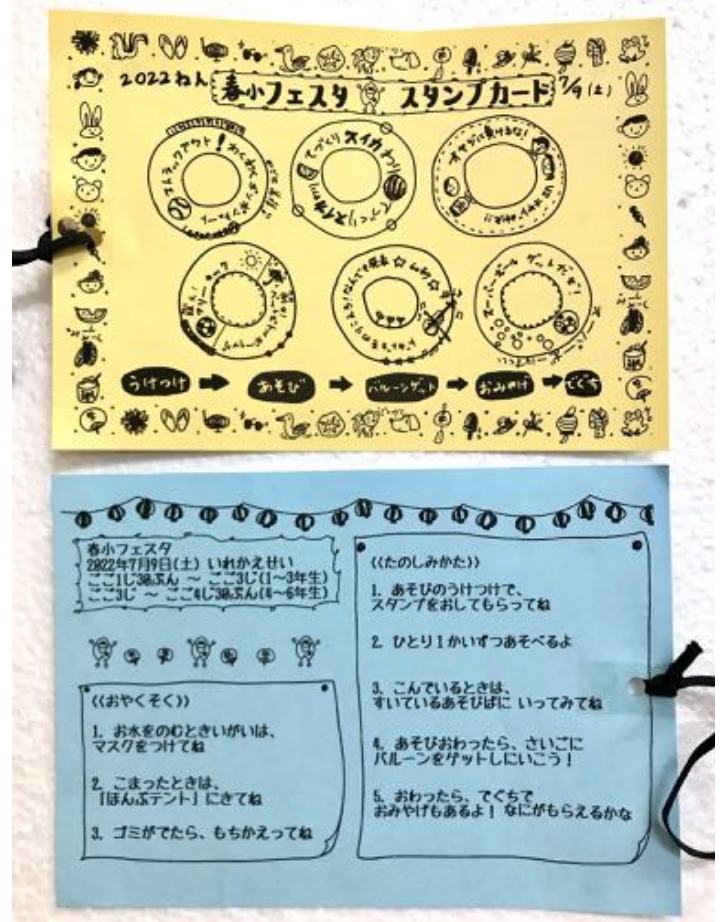 2022ねん 春小フェスタ スタンプカード 7/9(土)
ストラックアウト!
てづくりスイカわり
てづくりスイカわり
オヤジに負けるな!
スーパーボール ゲットだぜ!
うけつけ → あそび → バルーンゲット → おみやげ → でぐち
春小フェスタ
2022年7月9日(土) いれかえせい
ごご1じ30ぷん ~ ごご3じ(1~3年生)
ごご3じ ~ ごご4じ30ぷん(4~6年生)
《おやくそく》
1. お水をのむときいがいは、
マスクをつけてね
2. こまったときは、
「ほんぶテント」にきてね
3. ゴミがでたら、もちかえってね
《たのしみかた》
1. あそびのうけつけで、
スタンプをおしてもらってね
2. ひとり1かいずつあそべるよ
3. こんでいるときは、
すいているあそびばに いってみてね
4. あそびおわったら、さいごに
バルーンをゲットしにいこう!
5. おわったら、でぐちで
おみやげもあるよ! なにがもらえるかな